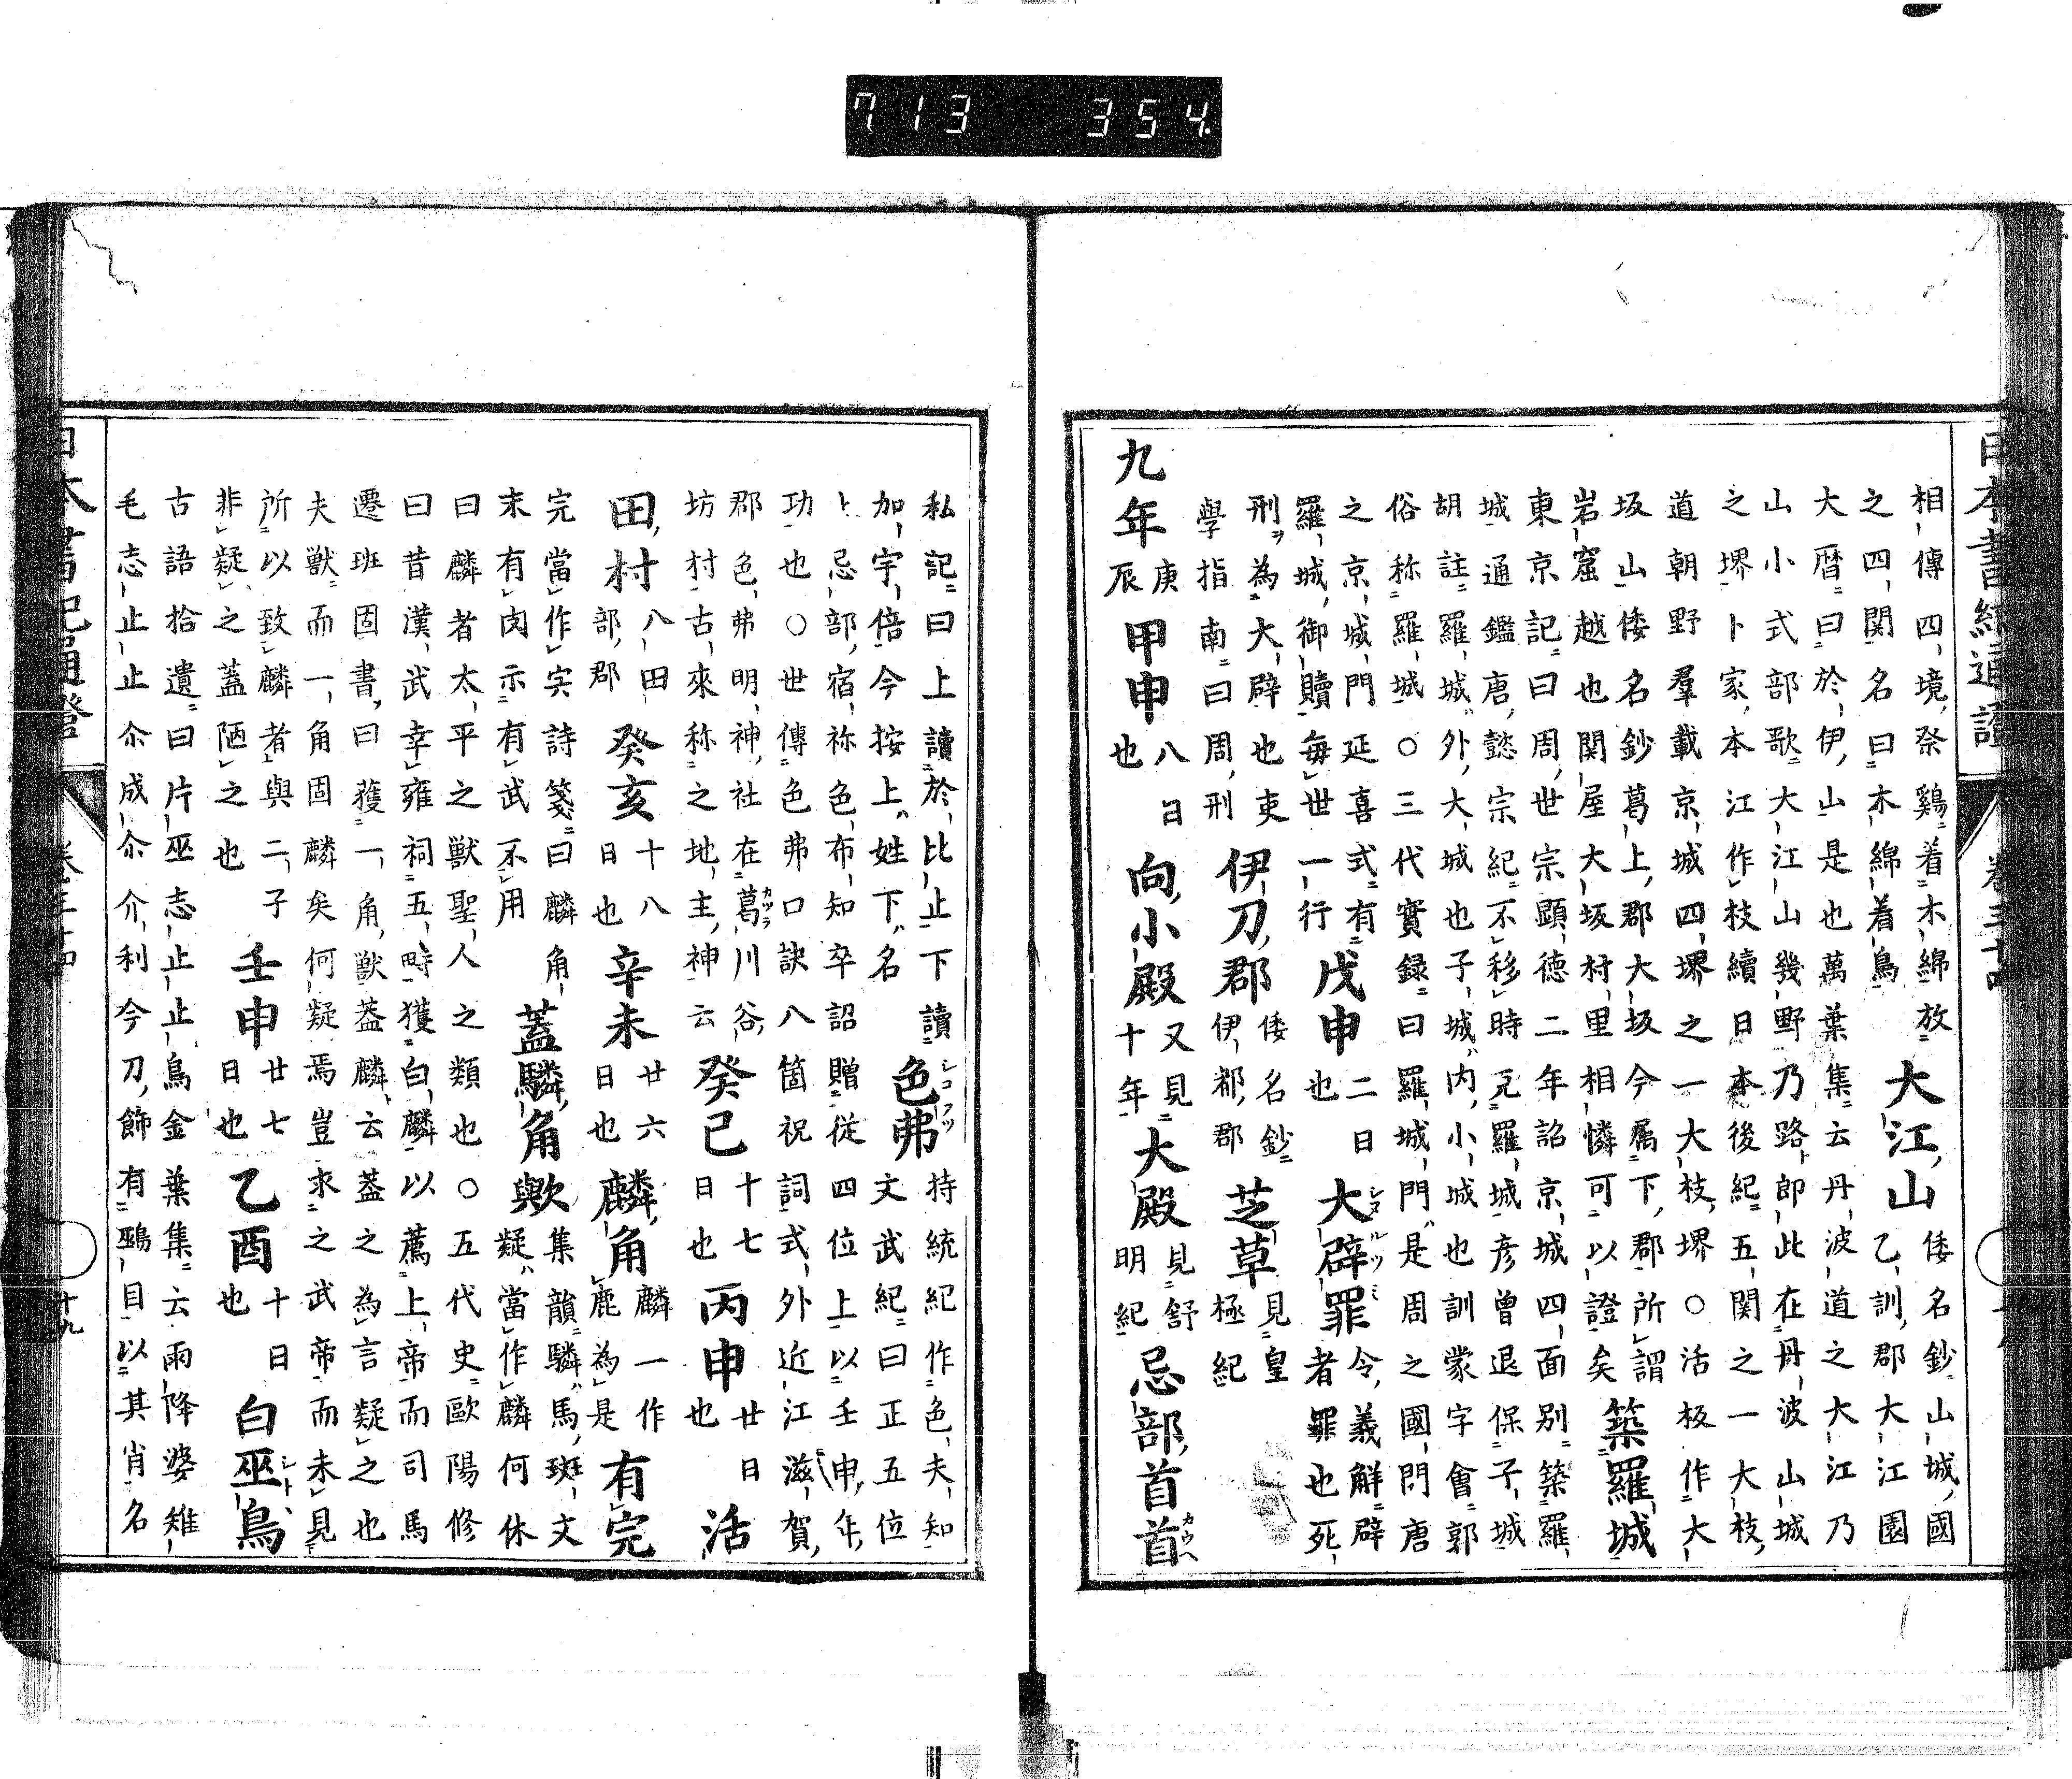 713 354
日本書紀通證 卷三十四
相傳四境祭鷄着木綿放 大江山 倭名鈔山城國
之四関名曰木綿着鳥 乙訓郡大江園
大暦曰於伊山是也萬葉集云丹波道之大江乃
山小式部歌大江山幾野乃路郎此在丹波山城
之堺卜家本江作枝續日本後紀五関之一大枝
道朝野羣載京城四堺之一大枝堺○活板作大
坂山倭名鈔葛上郡大坂今属下郡所謂 築羅城
岩窟越也関屋大坂村里相憐可以證矣
東京記曰周世宗顕德二年詔京城四面別築羅
城通鑑唐懿宗紀不移時克羅城彦曽退保子城
胡註羅城外大城也子城内小城也訓蒙字會郭
俗称羅城○三代實録曰羅城門是周之國門唐
之京城門延喜式有 戊申 二日 大辟罪 令義解辟
羅城御贖毎世一行 也 シヌルツミ 者罪也死
刑為大辟也吏 伊刀郡 倭名鈔 芝草 見皇
學指南曰周刑 伊都郡 極紀
九年 庚辰 甲申 八日也 向小殿 又見十年 大殿 見舒明紀 忌部首首 カウヘ
私記曰上讀於比止下讀 色弗 シコフツ 持統紀作色夫知
加宇倍今按上姓下名 文武紀曰正五位
上忌部宿祢色布知卒詔贈從四位上以壬申年
功也○世傳色弗口訣八箇祝詞式外近江滋賀
郡色弗明神社在葛川谷 カツラ 癸巳 十七日也 丙申 廿日也 活
坊村古來称之地主神云
田村 八田部郡 癸亥 十八日也 辛未 廿六日也 麟角 麟一作鹿為是 有完
完當作宍詩箋曰麟角 蓋驎角歟 集韻驎馬斑文
末有肉示有武不用 疑當作麟何休
曰麟者太平之獣聖人之類也○五代史歐陽修
曰昔漢武幸雍祠五畤獲白麟以薦上帝而司馬
遷班固書曰獲一角獣葢麟云葢之為言疑之也
夫獣而一角固麟矣何疑焉豈求之武帝而未見
所以致麟者與二子 壬申 廿七日也 乙酉 十日也 白巫鳥 シトヽ
非疑之蓋陋之也
古語拾遺曰片巫志止止鳥金葉集云雨降婆雉
毛志止止尒成尒介利今刀飾有鵐目以其肖名
日本書紀通證 卷三十四 十九